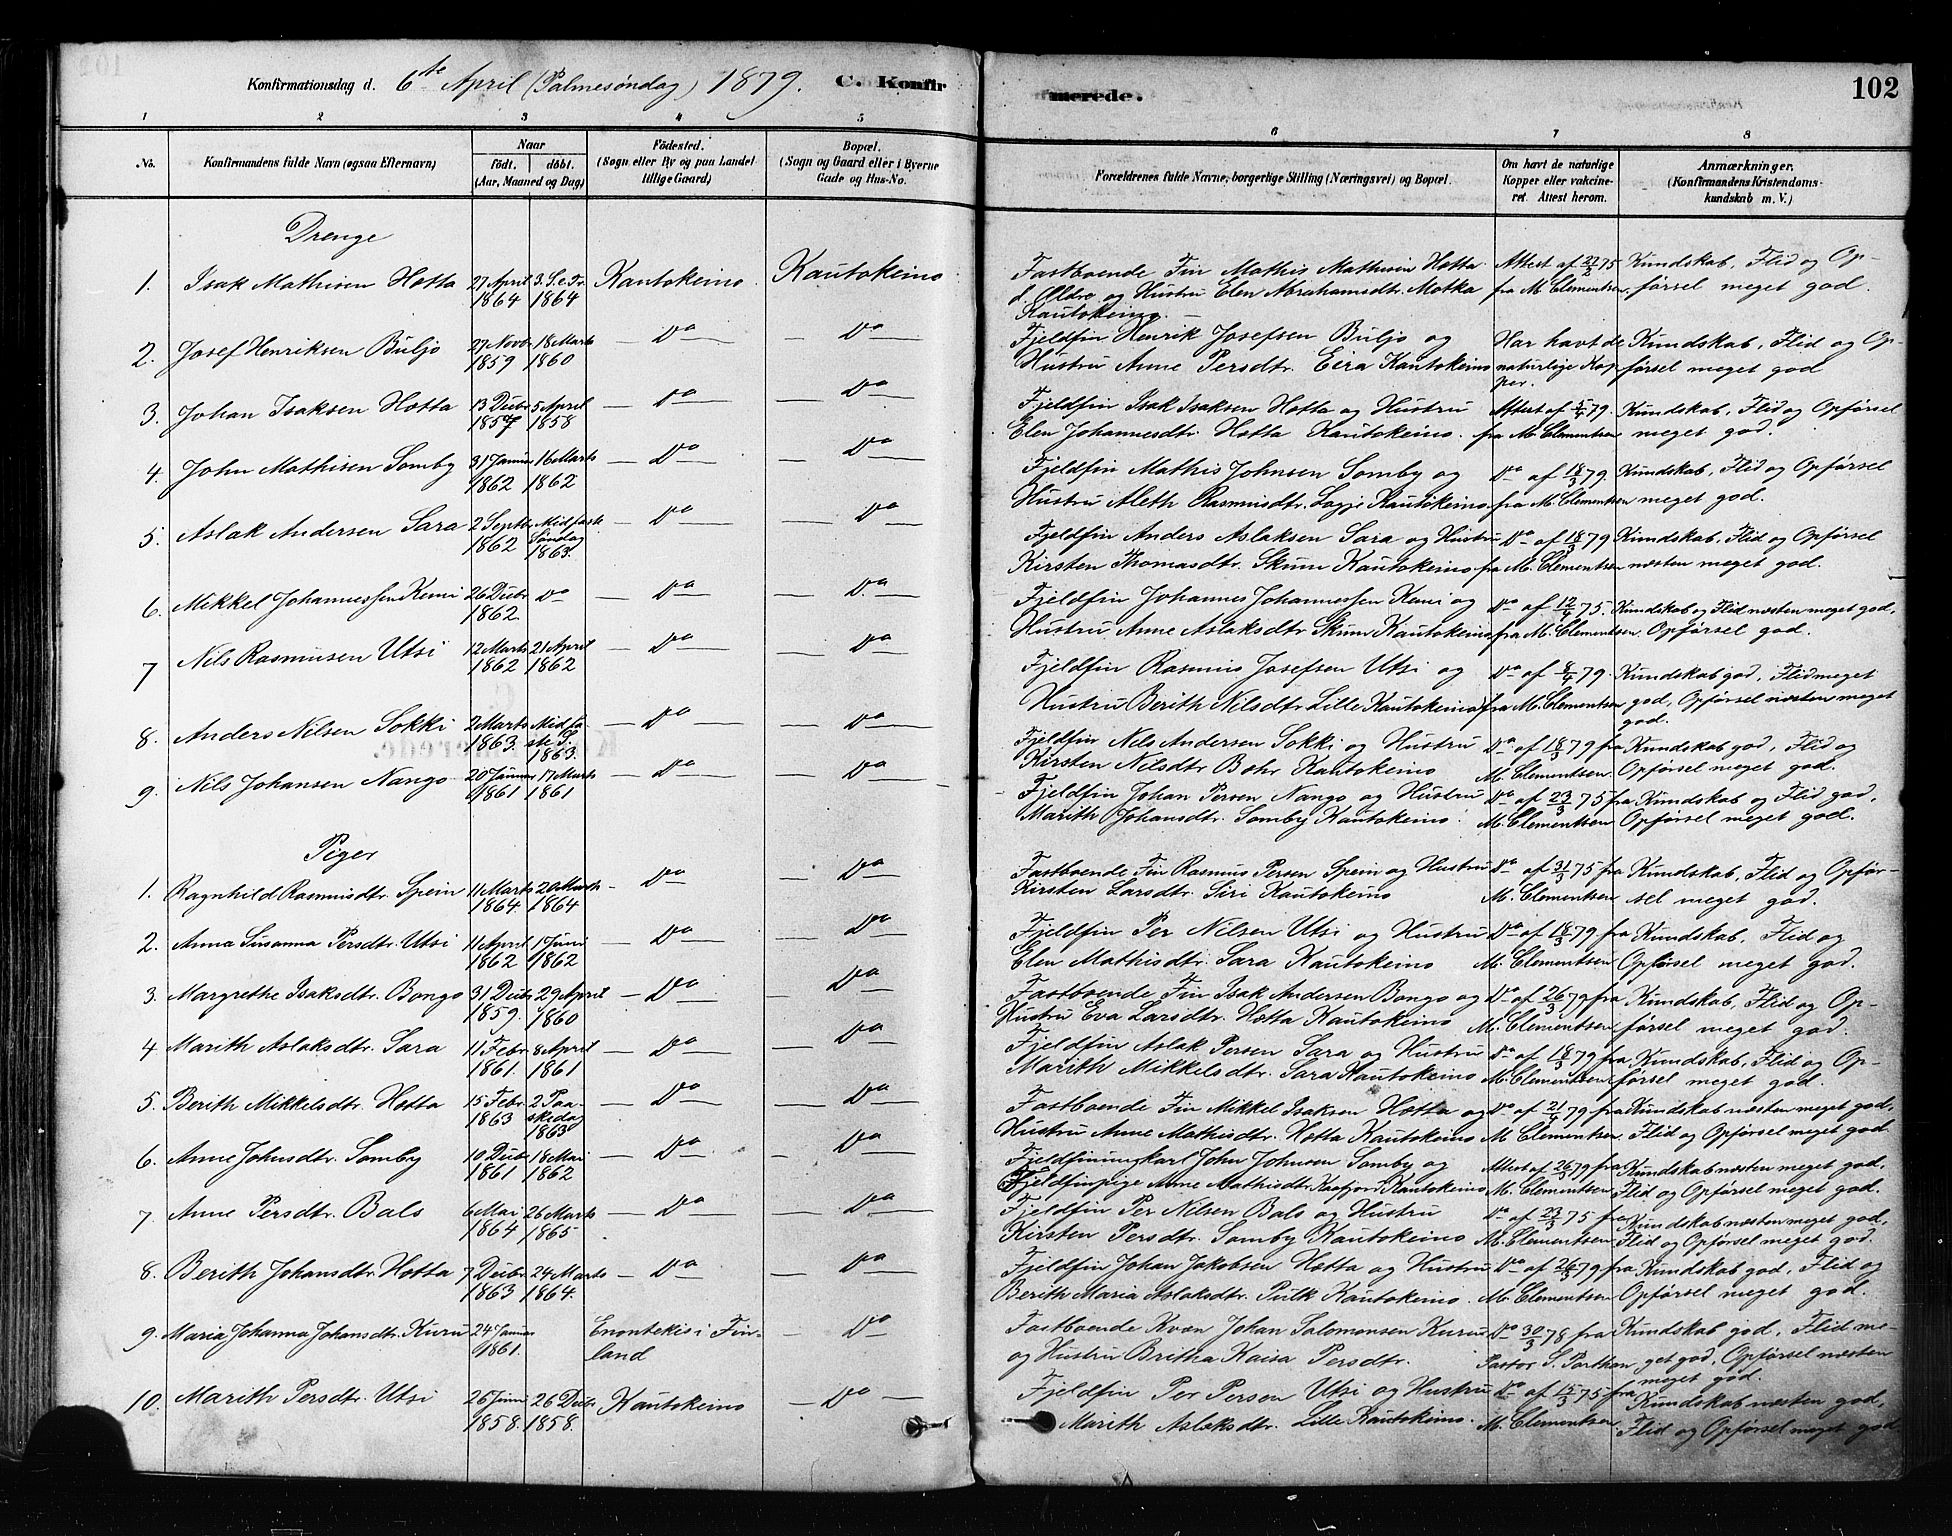 Konfirmationsdag d. 6te April (Palmesøndag) 1879. C. Konfirmerede. 102
1 2 3 4 5 6 7 8
No. Konfirmandens fulde Navn (ogsaa Efternavn). Naar födt. döbt. (Aar, Maaned og Dag) Födested. (Sogn eller By og paa Landet tillige Gaard) Bopæl. (Sogn og Gaard eller i Byerne Gade og Hus-No. Forældrenes fulde Navne, borgerlige Stilling (Næringsvei) og Bopæl. Om havt de naturlige Kopper eller vakcineret. Attest herom. Anmærkninger. (Konfirmandens Kristendomskundskab m. V.)
Drenge
1. Isak Mathisen Hætta 27 April 1864 3. S. e. Tr. 1864 Kautokeino Kautokeino Fastboende Fin Mathis Mathisen Hætta d. Ældre og Hustru Elen Abrahamsdtr. Motka Kautokeino. Attest af 22/2 75 fra M. Clementsen. Kundskab, Flid og Opførsel meget god.
2. Josef Henriksen Buljo 27 Novb. 1859 18 Marts 1860 Do Do Fjeldfin Henrik Josefsen Buljo og Hustru Anne Persdtr. Eira Kautokeino Har havt de naturlige Kopper. Kundskab, Flid og Opførsel meget god
3. Johan Isaksen Hætta 13 Decbr 1857 5 April 1858 Do Do Fjeldfin Isak Isaksen Hætta og Hustru Elen Johannesdtr. Hætta Kautokeino. Attest af 5/4 79. fra M. Clementsen Kundskab, Flid og Opførsel meget god.
4. John Mathisen Somby 31 Januar 1862 16 Marts 1862 Do Do Fjeldfin Mathis Johnsen Somby og Hustru Aleth Rasmusdtr. Logje Kautokeino Do af 18/3 79. fra M. Clementsen Kundskab, Flid og Opførsel meget god.
5. Aslak Andersen Sara 2 Septbr 1862 Midfaste Søndag 1863. Do Do Fjeldfin Anders Aslaksen Sara og Hustru Kirsten Thomasdtr. Skum Kautokeino Do af 18/3 79 fra M. Clementsen Kundskab, Flid og Opførsel næsten meget god.
6. Mikkel Johannessen Kemi 26 Decbr 1862. Do Do Do. Fjeldfin Johannes Johannessen Kemi og Hustru Anne Aslaksdtr Skum Kautokeino Do af 12/4 75. fra M. Clementsen. Kundskab og Flid næsten meget god, Opførsel god.
7 Nils Rasmusen Utsi 12 Marts 1862 21 April 1862 Do Do Fjeldfin Rasmus Josefsen Utsi og Hustru Berith Nilsdtr Lille Kautokeino Do af 8/4 79. fra M. Clementsen Kundskab god, Flid meget god, Opførsel næsten meget god.
8. Anders Nilsen Sokki 2 Marts 1863. Midfaste S. 1863. Do Do Fjeldfin Nils Andersen Sokki og Hustru Kirsten Nilsdtr Bohr Kautokeino Do af 18/3 79 fra M. Clementsen. Kundskab god, Flid og Opførsel meget god.
9. Nils Johansen Nango 20 Januar 1861 17 Marts 1861 Do Do Fjeldfin Johan Persen Nango og Hustru Marith Johansdtr. Somby Kautokeino. Do af 23/3 75 fra M. Clementsen Kundskab og Flid god, Opførsel meget god.
Piger
1. Ragnhild Rasmusdtr. Spein 11 Marts 1864. 20 Marts 1864 Do Do Fastboende Fin Rasmus Persen Spein og Hustru Kirsten Larsdtr. Siri Kautokeino Do af 31/3 75 fra M. Clementsen Kundskab, Flid og Opførsel meget god.
2. Anna Susanna Persdtr. Utsi 11 April 1862 1 Juni 1862 Do Do Fjeldfin Per Nilsen Utsi og Hustru Elen Mathisdtr. Sara Kautokeino Do af 18/3 79 fra M. Clementsen Kundskab, Flid og Opførsel meget god.
3. Margrethe Isaksdtr. Bongo 31 Decbr 1859. 29 April 1860 Do Do Fastboende Fin Isak Andersen Bongo og Hustru Eva Larsdtr. Hætta Kautokeino Do af 26/3 79 fra M. Clementsen Kundskab, Flid og Opførsel meget god.
4 Marith Aslaksdtr. Sara 11 Febr. 1861. 8 April 1861 Do Do Fjeldfin Aslak Persen Sara og Hustru Marith Mikkelsdtr. Sara Kautokeino Do af 18/3 79 fra M. Clementsen Kundskab, Flid og Opførsel meget god.
5. Berith Mikkelsdtr. Hætta 15 Febr. 1863 2 Paaskedag 1863 Do Do Fastboende Fin Mikkel Isaksen Hætta og Hustru Anne Mathisdtr. Hætta Kautokeino Do af 21/4 79 fra M. Clementsen. Kundskab næsten meget god, Flid og Opførsel meget god.
6. Anne Johnsdtr. Somby 10 Decbr 1861 18 Mai 1862 Do Do Fjeldfinungkarl John Johnsen Somby og Fjeldfinpige Anne Mathisdtr. Kaafjord Kautokeino Attest af 26 79 fra M. Clementsen. Kundskab næsten meget god, Flid og Opførsel meget god.
7 Anne Persdtr. Bals 6 Mai 1864 26 Marts 1865 Do Do Fjeldfin Per Nilsen Bals og Hustru Kirsten Persdtr. Somby Kautokeino Do af 23/3 75 fra M. Clementsen Kundskab næsten meget god, Flid og Opførsel meget god.
8. Berith Johansdtr. Hætta 7 Decbr 1863 24 Marts 1864. Do Do Fjeldfin Johan Jakobsen Hætta og Hustru Berith Maria Aslaksdtr. Kautokeino. Do af 26/3 79 fra M. Clementsen Kundskab god, Flid og Opførsel meget god.
9. Maria Johanna Johansdtr. Kuru 24 Januar 1861. Enontekis i Finland Do Fastboende Kvæn Johan Salomonsen Kuru og Hustru Britha Kaisa Persdtr. Do 30/3 78 fra Pastor S. Kundskab god, Flid meget god, Opførsel næsten meget god.
10. Marith Persdtr. Utsi 26 Juni 1858. 26 Decbr 1858. Kautokeino Do Fjeldfin Per Persen Utsi og Hustru Marith Aslaksdtr. Lille Kautokeino. Do af 15/3 75 fra M. Clementsen Kundskab næsten god, Flid og Opførsel meget god